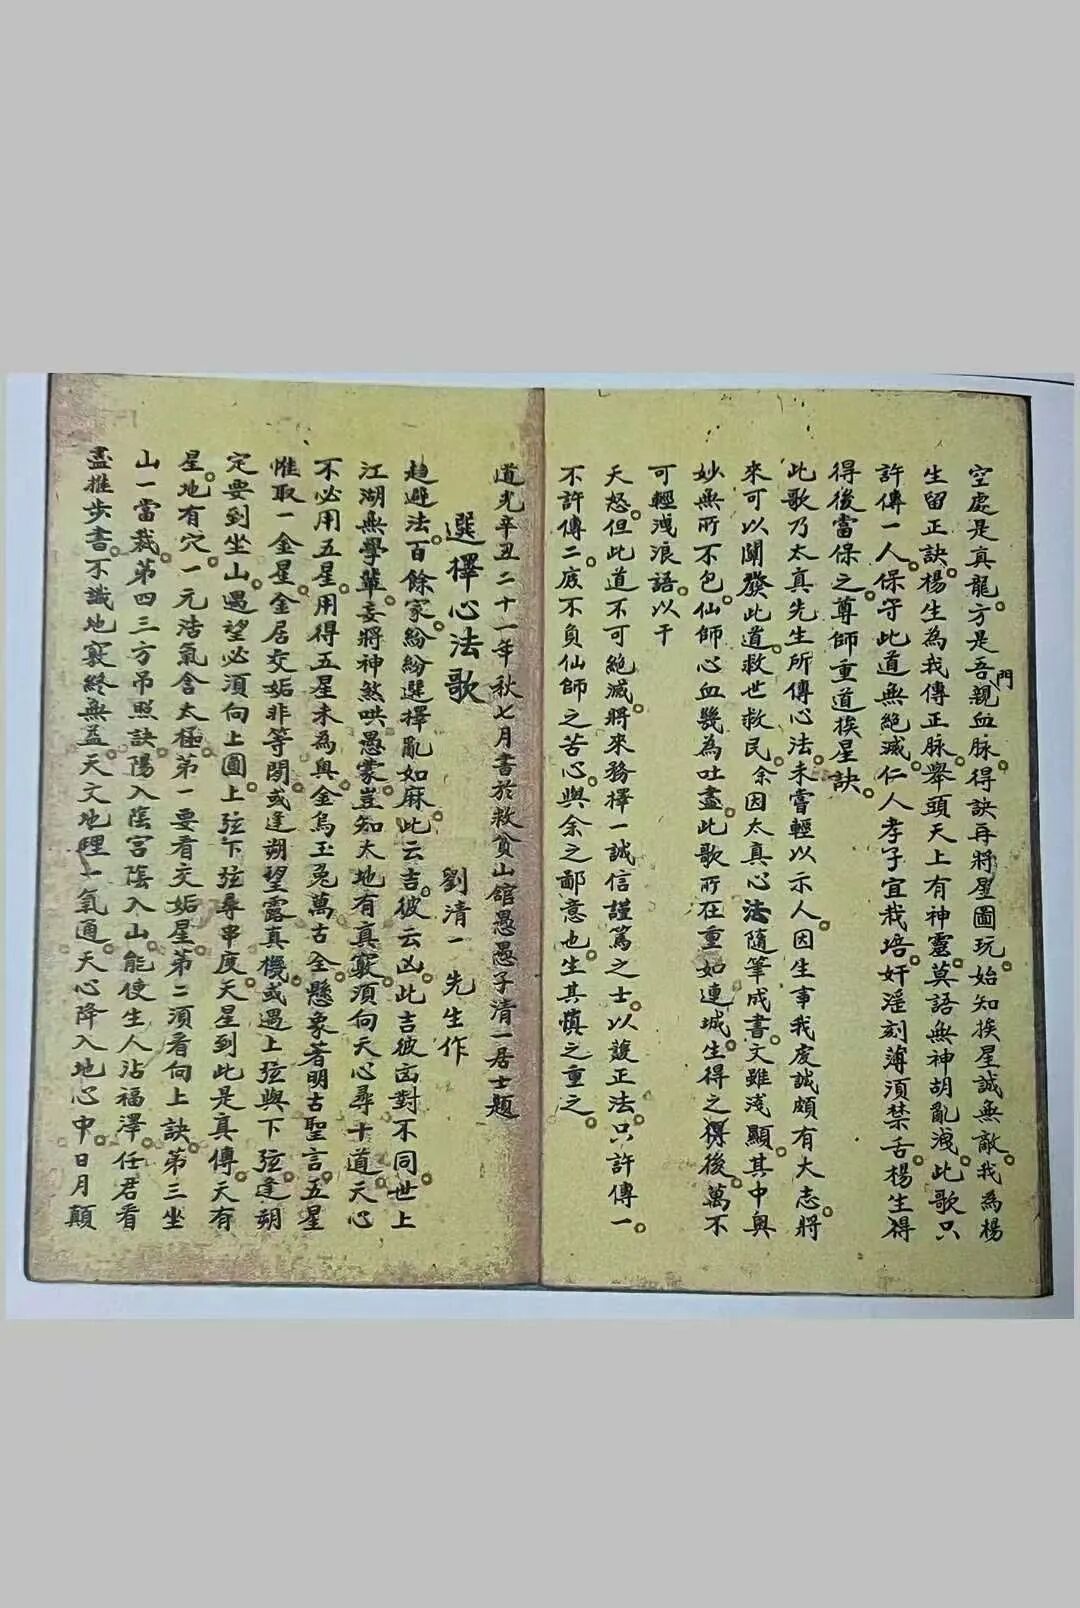 空處是真龍方是吾門親血脉得訣再將星圖玩始知挨星誠無敵我為楊
生留正訣楊生為我傳正脉舉頭天上有神靈莫語無神胡亂洩此歌只
許傳一人保守此道無絕滅仁人孝子宜栽培奸滛刻薄湏禁舌楊生得
得後當保之尊師重道挨星訣
此歌乃太真先生所傳心法未嘗輕以示人因生事我虔誠頗有大志將
來可以闡發此道救世救民余因太真心法隨筆成書文雖淺顯其中奥
妙無所不包仙師心血幾為吐盡此歌所在重如連城生得之得後萬不
可輕洩浪語以干
天怒但此道不可絕滅將來務擇一誠信謹篤之士以護正法只許傳一
不許傳二庶不負仙師之苦心與余之鄙意也生其慎之重之
道光辛丑二十一年秋七月書於救貧山館愚愚子清一居士題
選擇心法歌　劉清一先生作
趨避法百餘家紛紛選擇亂如麻此云吉彼云凶此吉彼凶對不同世上
江湖無學輩妄將神煞哄愚蒙豈知大地有真竅湏向天心尋十道天心
不必用五星用得五星未為與金烏玉兔萬古全懸象著明古聖言五星
惟取一金星金居交姤非等閒或逢朔望露真機或遇上弦與下弦逢朔
定要到坐山遇望必湏向上圓上弦下弦尋串度天星到此是真傳天有
星地有穴一元活氣含太極第一要看交姤星第二湏看向上訣第三坐
山一當裁第四三方吊照訣陽入陰宫陰入山能使生人沾福澤任君看
盡推步書不識地竅終無益天文地理一氣通天心降入地心中日月顛